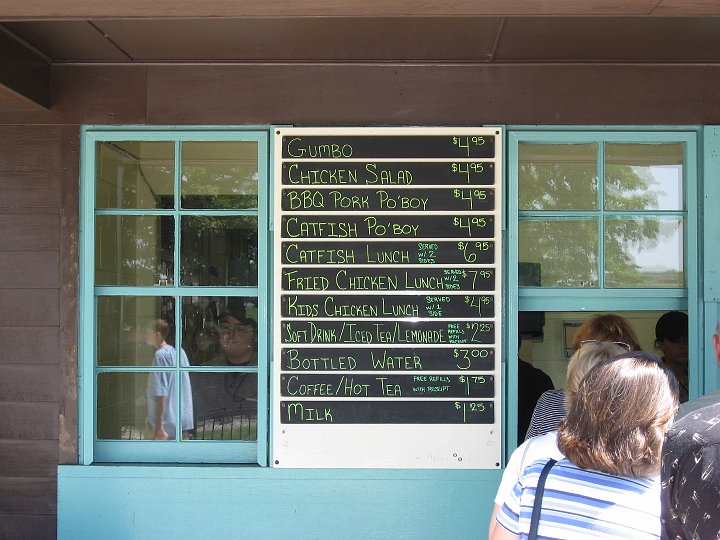 GUMBO $4.95
CHICKEN SALAD $4.95
BBQ PORK PO'BOY $4.95
CATFISH PO'BOY $4.95
CATFISH LUNCH SERVED W/2 SIDES $6.95
FRIED CHICKEN LUNCH SERVED W/2 SIDES $7.95
KIDS CHICKEN LUNCH SERVED W/1 SIDE $4.95
SOFT DRINK/ICED TEA/LEMONADE FREE REFILLS WITH RECEIPT $2.25
BOTTLED WATER $3.00
COFFEE/HOT TEA FREE REFILLS WITH RECEIPT $1.75
MILK $1.25